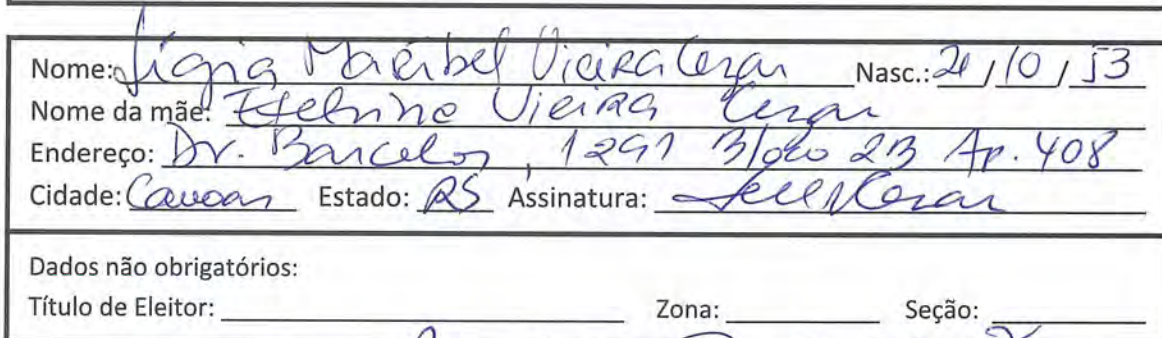 Nome: Lígia Maribel Vieira Cezar Nasc.: 21/10/53
Nome da mãe: Vieira Cezar
Endereço: Dr. Barcelos, 1291 Bloco 2B Ap. 408
Cidade: Canoas Estado: RS Assinatura:
Dados não obrigatórios:
Título de Eleitor: Zona: Seção: